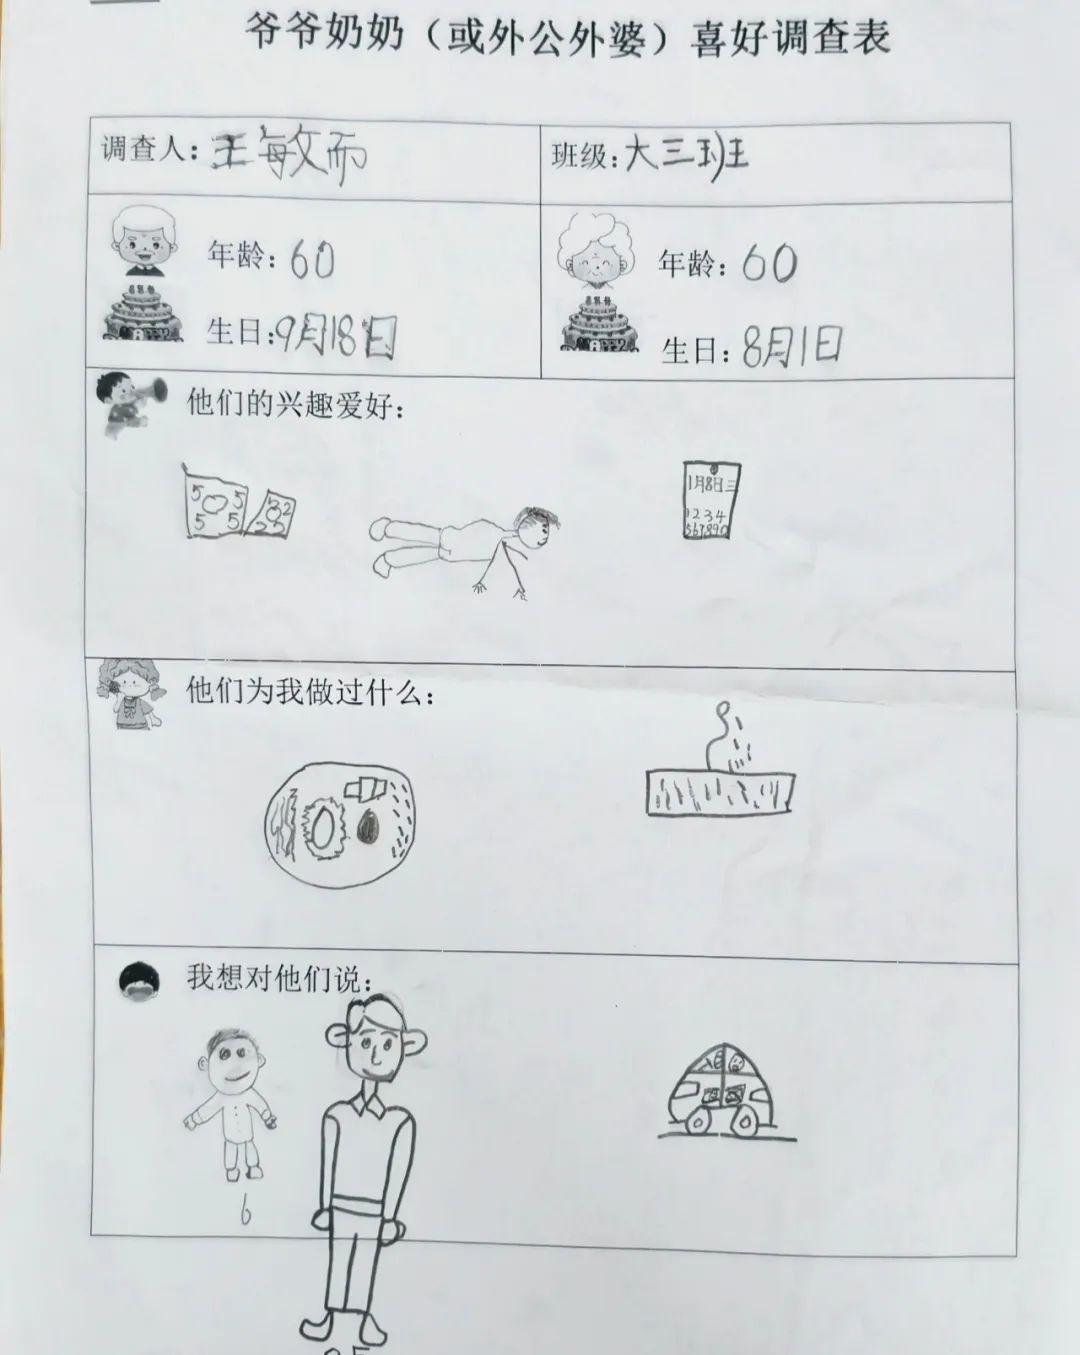 爷爷奶奶（或外公外婆）喜好调查表
调查人：王敏而
班级：大三班
年龄：60
生日：9月18日
年龄：60
生日：8月1日
他们的兴趣爱好：
5 5
5 5
2
2 2
1月8日三
1234
567890
他们为我做过什么：
我想对他们说：
6